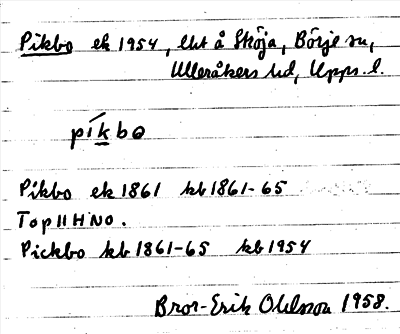 Pikbo ek 1954, lht å Sköja, Börje sn,
Ulleråkers hd, Upps. l.
píkbo
Pikbo ek 1861 kb 1861-65
Top II H No.
Pickbo kb 1861-65 kb 1954
Bror-Erik Ohlsson 1958.